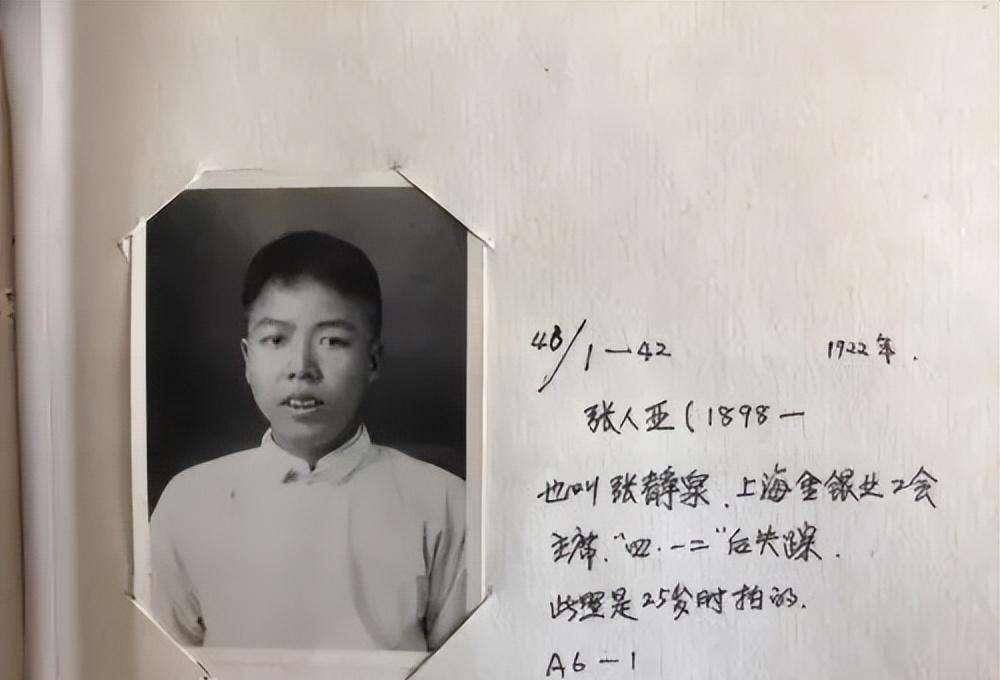 48/1—42 1922年.
张人亚(1898—
也叫张静泉、上海金银业工会
主席.“四·一二”后失踪.
此照是25岁时拍的.
A6—1